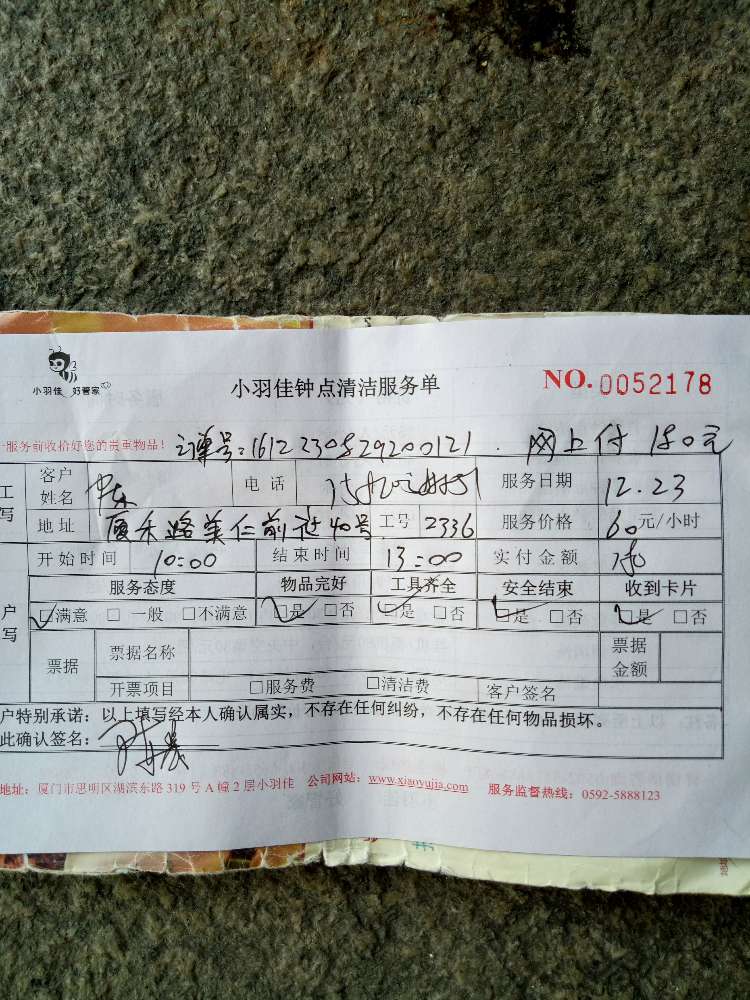 小羽佳 好管家
小羽佳钟点清洁服务单
NO. 0052178
服务前收拾好您的贵重物品！ 订单号：1612230829200121. 网上付180元
工 客户姓名 电话 服务日期 12.23
写 地址 厦禾路美仁前社40号 工号 2336 服务价格 60元/小时
开始时间 10:00 结束时间 13:00 实付金额
服务态度 物品完好 工具齐全 安全结束 收到卡片
户 □满意 □一般 □不满意 □是 □否 □是 □否 □是 □否 □是 □否
写 票据 票据名称 票据金额
开票项目 □服务费 □清洁费 客户签名
户特别承诺：以上填写经本人确认属实，不存在任何纠纷，不存在任何物品损坏。
此确认签名：
地址：厦门市思明区湖滨东路 319 号 A 幢 2 层小羽佳 公司网站：www.xiaoyujia.com 服务监督热线：0592-5888123